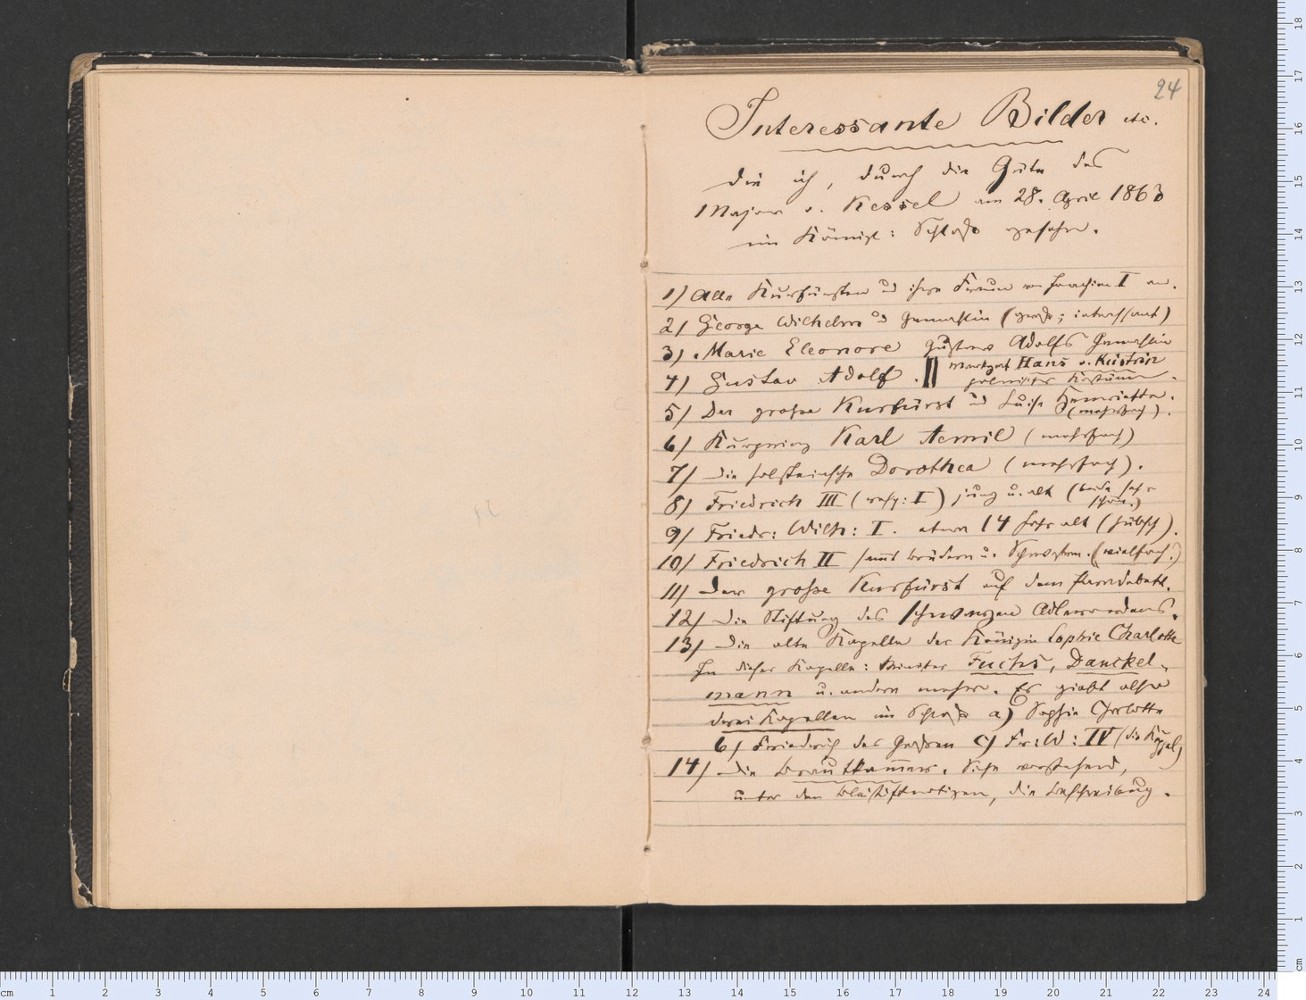 24
Interessante Bilder etc.
die ich, durch die Güte des
Major v. Kessel am 28. April 1863
im Königl: Schloß gesehn.
1) Alle Kurfürsten u ihre Frauen von Joachim I an.
2) George Wilhelm u Gemahlin (groß; interessant)
3) Marie Eleonore Gustav Adolfs Gemahlin
4) Gustav Adolf. || Markgraf Hans v. Küstrin
polnisches Kostüm.
5) Der große Kurfürst und Luise Henriette.
(mehrfach).
6) Kurprinz Karl Aemil (mehrfach)
7) Die holsteinsche Dorothea (mehrfach).
8) Friedrich III (resp: I) jung u. alt (beide sehr
schön.)
9) Friedr: Wilh: I. etwa 14 Jahr alt (hübsch).
10) Friedrich II samt Brüdern u. Schwestern. (vielfach.)
11) Der große Kurfürst auf dem Paradebett.
12) Die Stiftung des schwarzen Adlerordens.
13) Die alte Kapelle der Königin Sophie Charlotte
In dieser Kapelle: Minister Fuchs, Danckel-
mann u. andere mehr. Es giebt also
drei Kapellen im Schloß a) Sophie Charlotte
b) Friedrich des Großen c) Fr: W: IV (die Kuppel)
14) Die Brautkammer. Siehe vorstehend,
unter den Bleistiftnotizen, die Beschreibung.